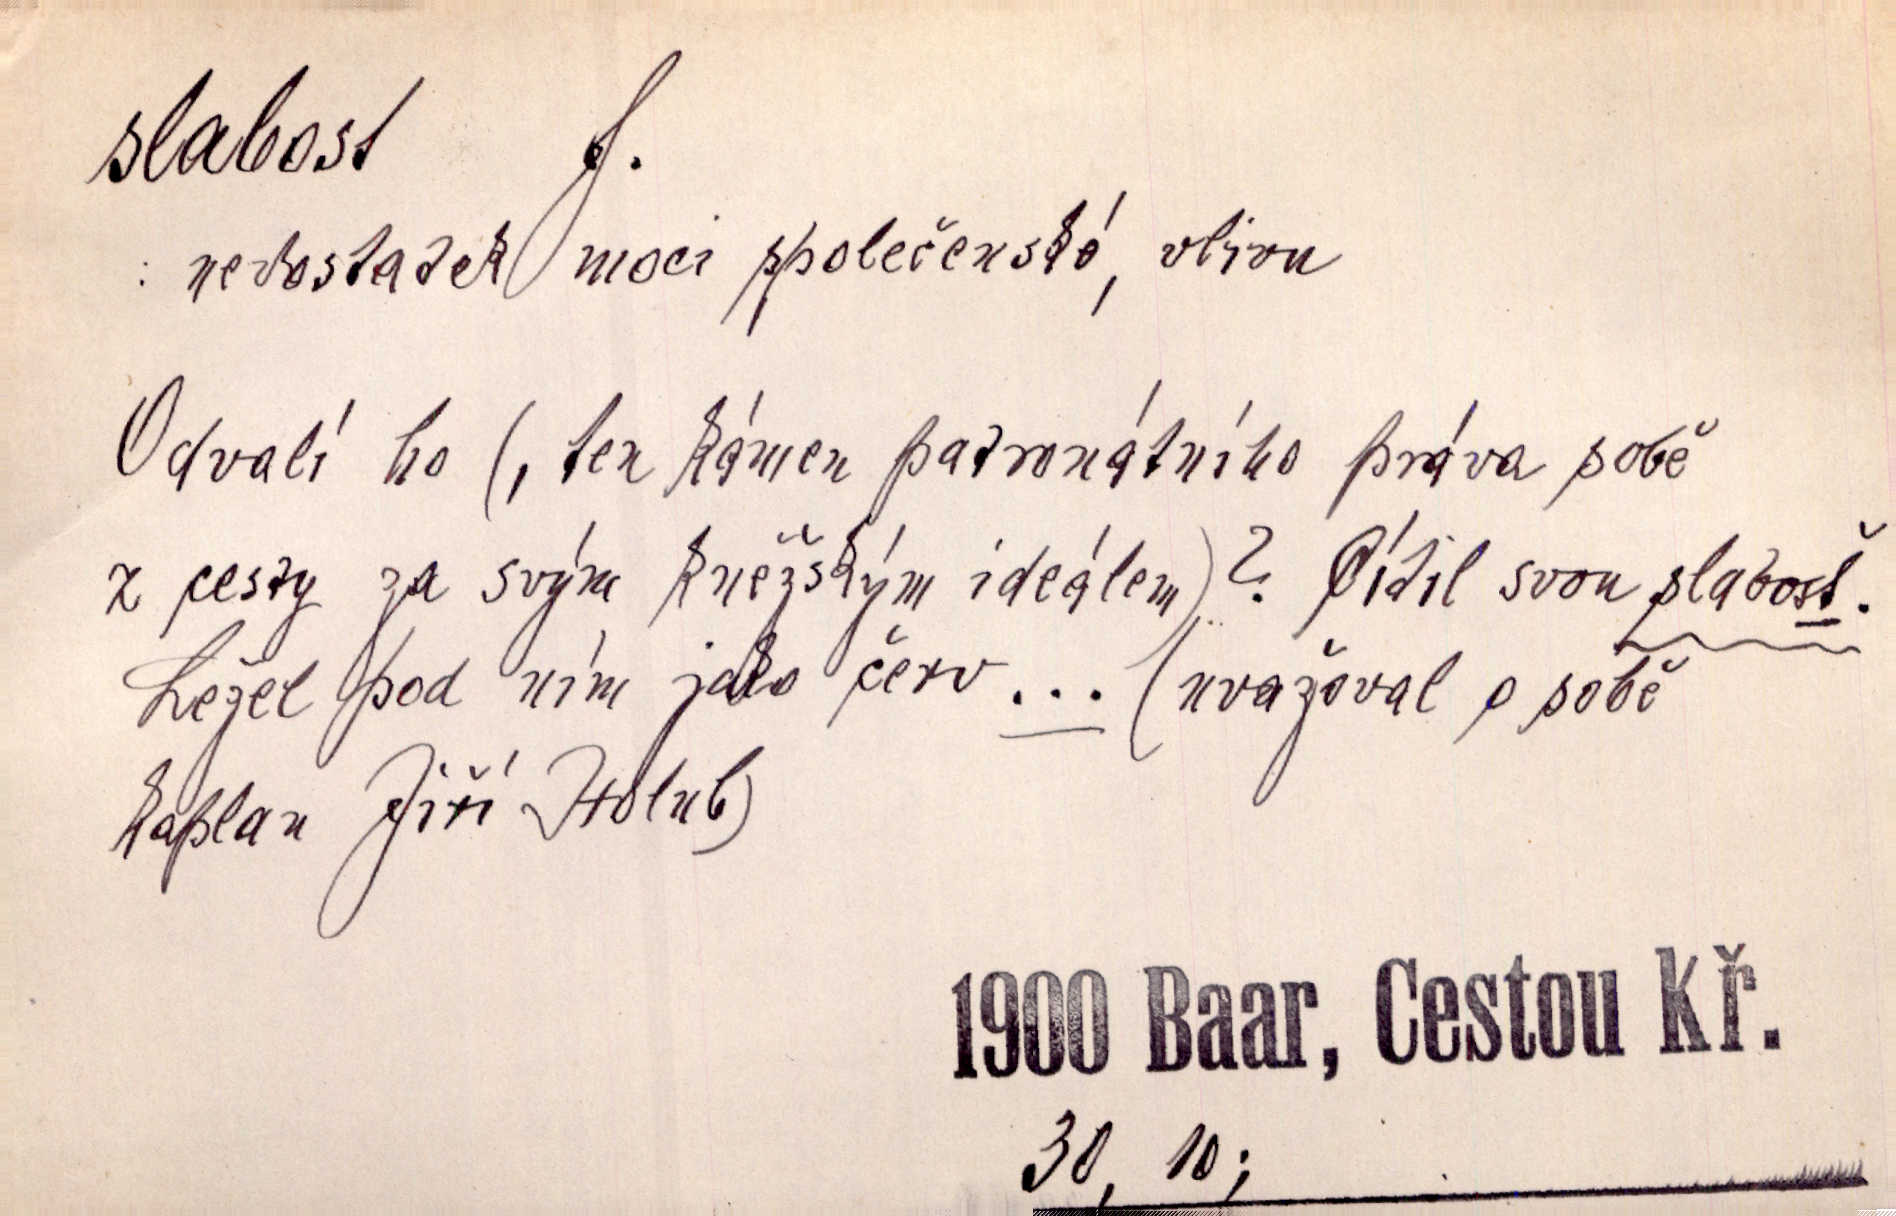 slabost f.
: nedostatek moci společenské, vlivu
Odvalí ho (, ten kámen patronátního práva sobě
z cesty za svým kněžským ideálem)? Cítil svou slabosť.
Ležel pod ním jako červ ... (uvažoval o sobě
kaplan Jiří Holub)
1900 Baar, Cestou kř.
30, 10;